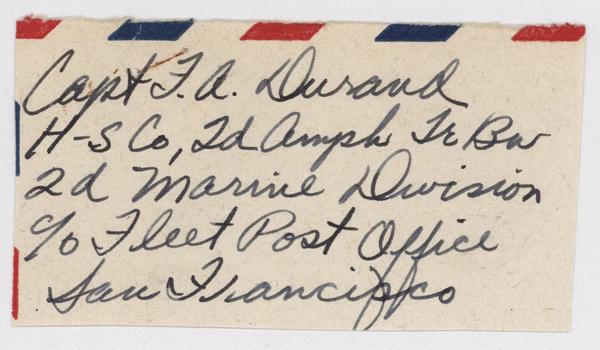 Capt F. A. Durand
H-S Co, 2d Amph Tr Bn
2d Marine Division
c/o Fleet Post Office
San Francisco